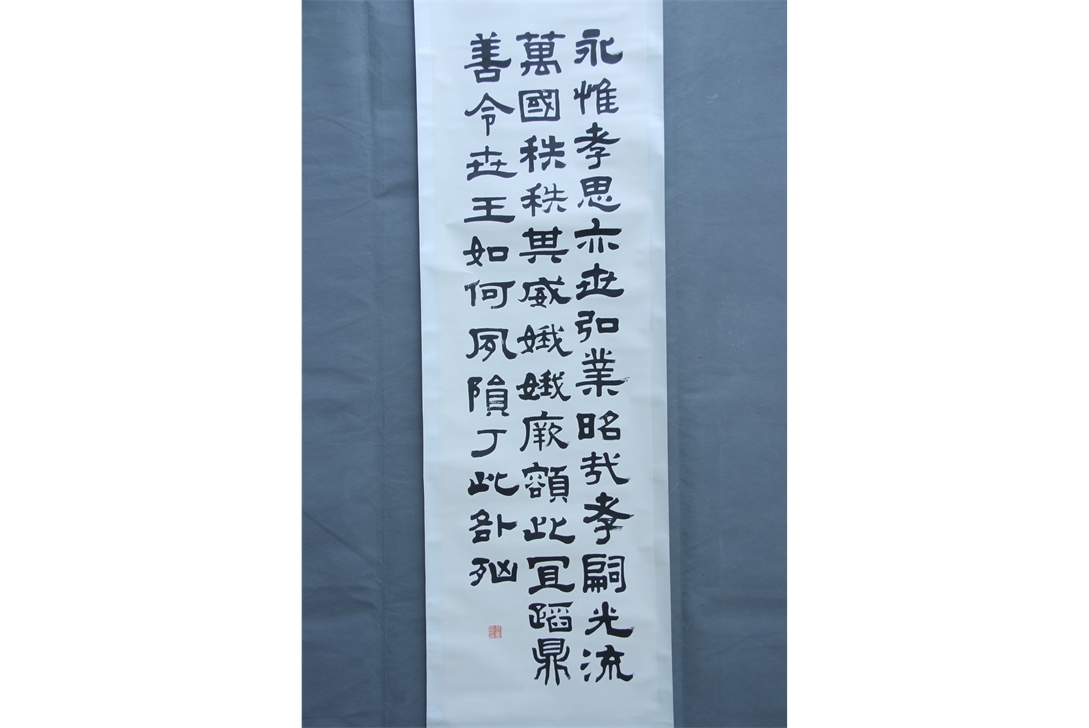 永惟孝思亦世弘業昭哉孝嗣光流
萬國秩秩其威娥娥厥額此宜蹈鼎
善令世王如何夙隕丁此咎